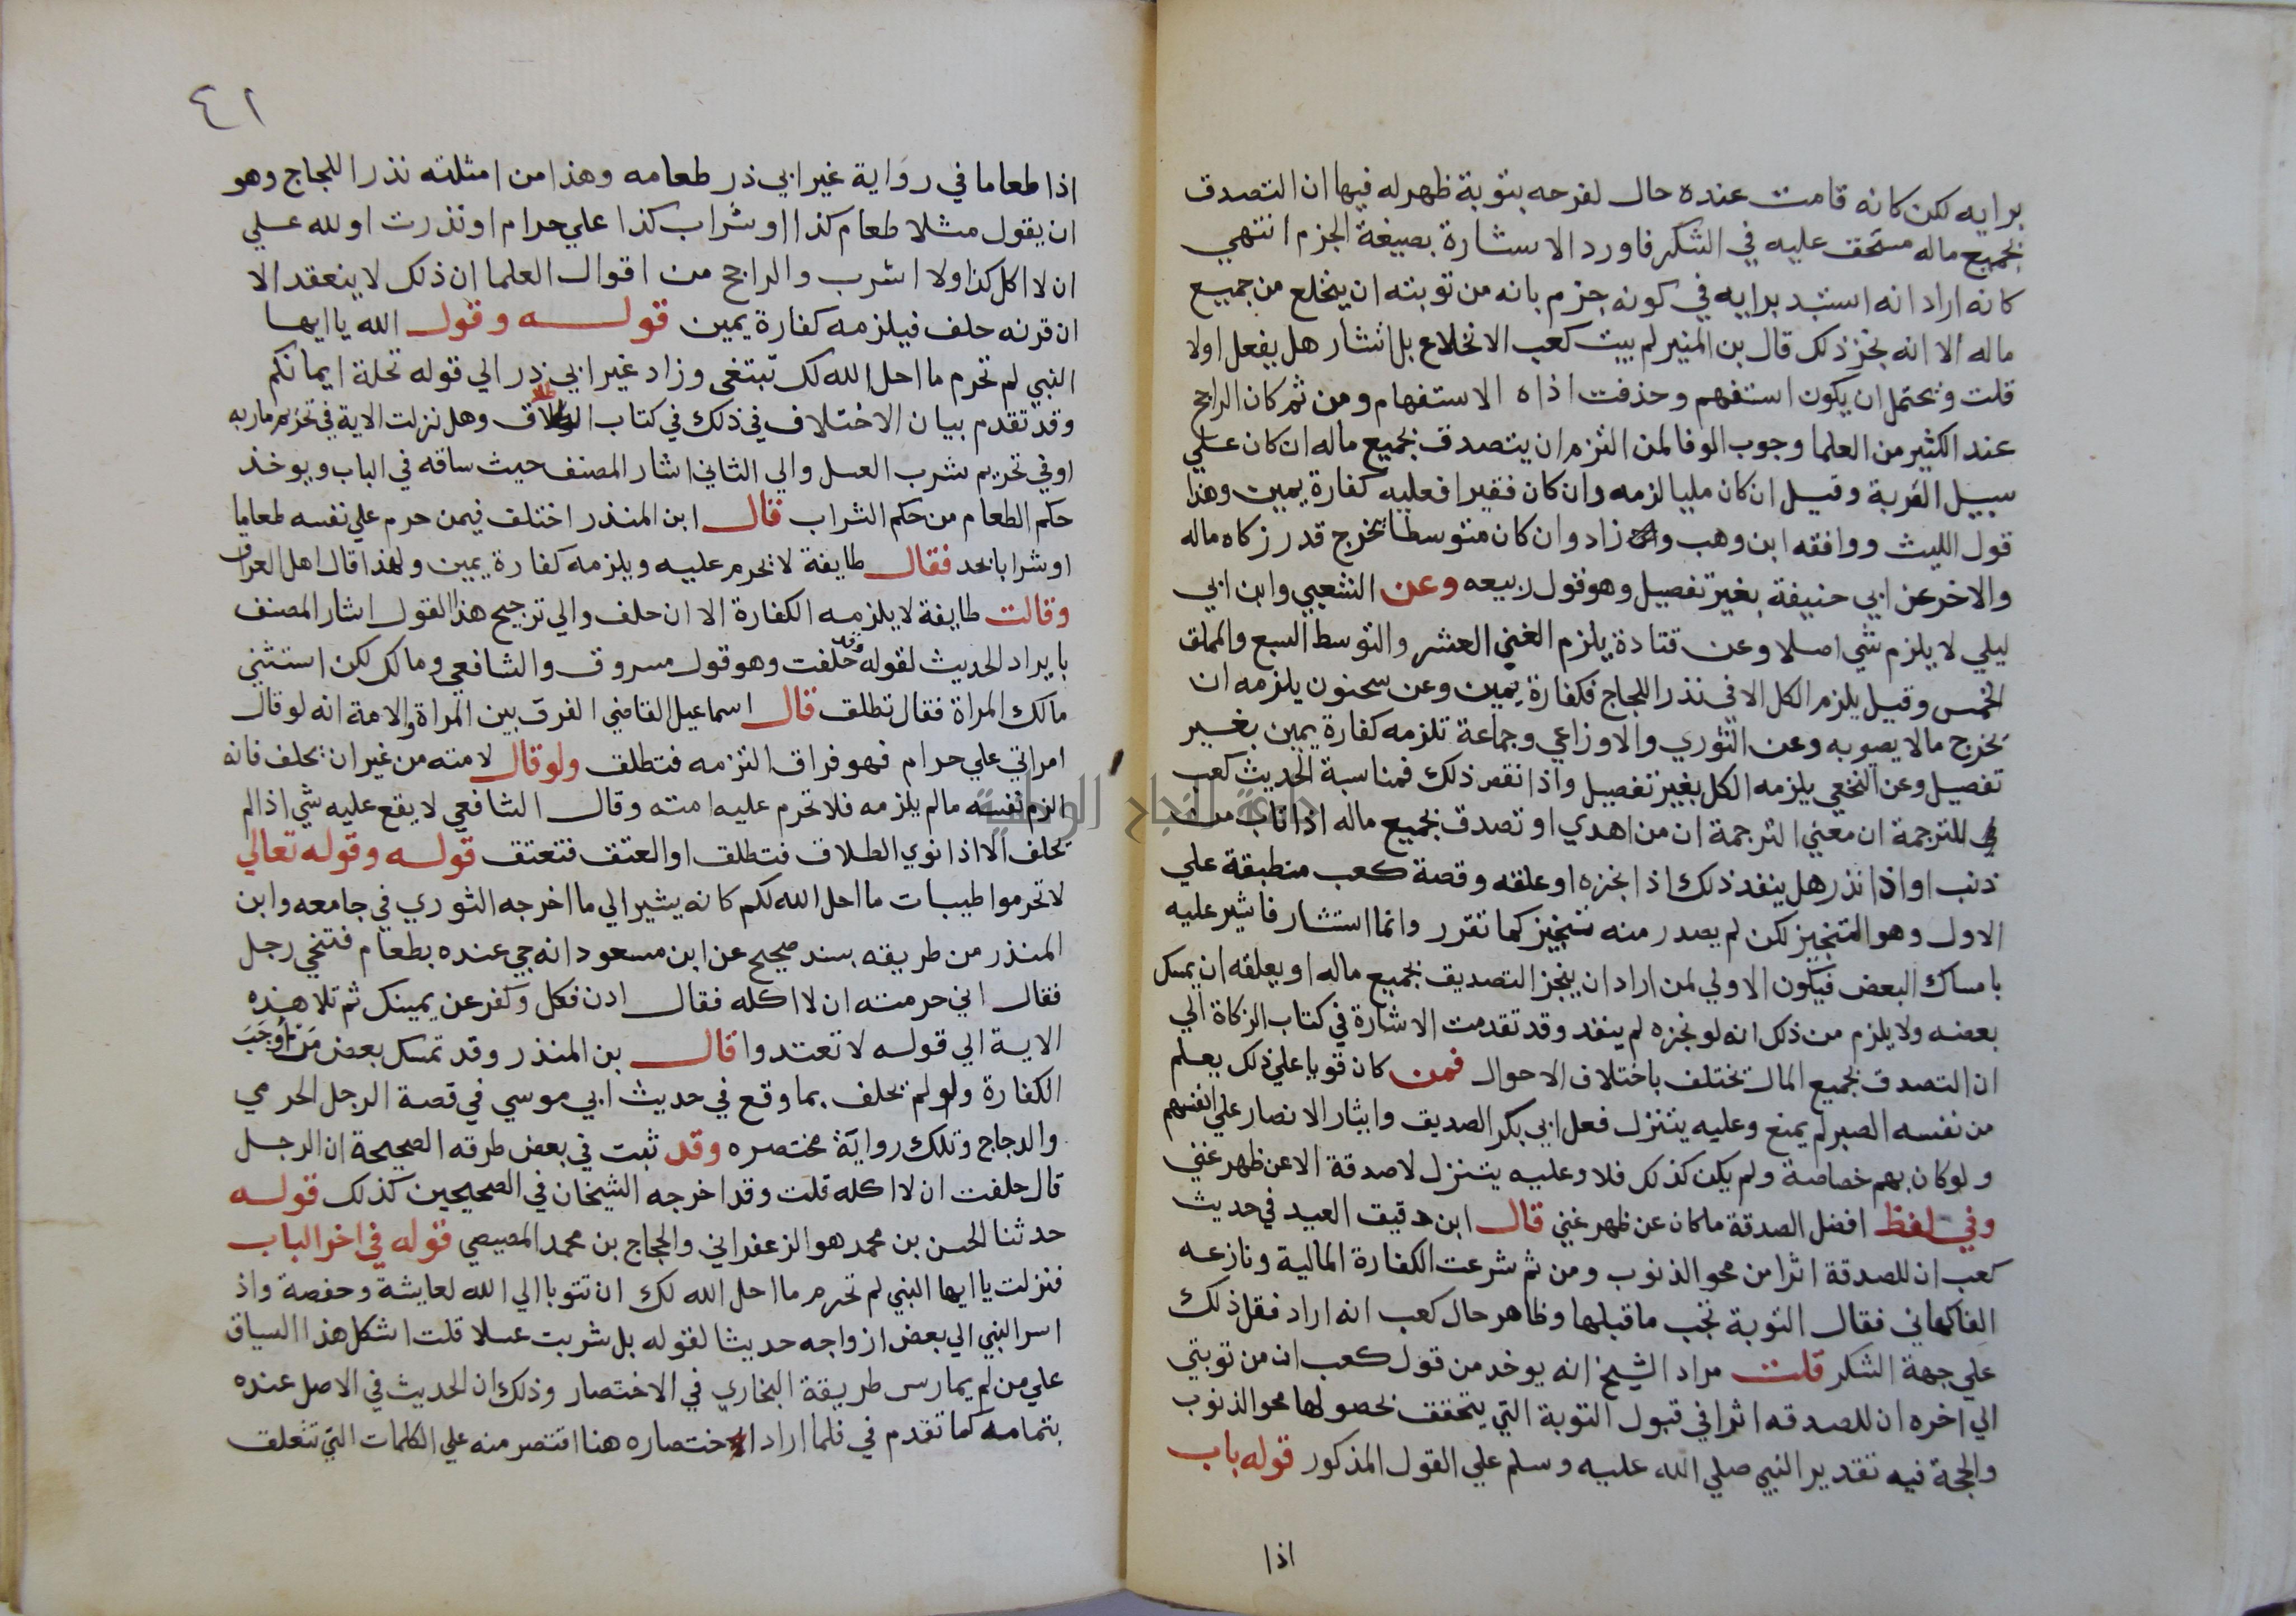 برايه لكن كانه قامت عنده حال لفرحه بتوبة ظهر له فيها ان التصدق
بجميع ماله مستحق عليه في الشكر فاورد الاستشارة بصيغة الجزم انتهي
كانه اراد انه استبد برايه في كونه جزم بانه من توبته ان ينخلع من جميع
ماله الا انه نجز ذلك قال بن المنير لم يبت كعب الانخلاع بل استشار هل يفعل اولا
قلت ويحتمل ان يكون استفهم وحذفت اداه الاستفهام ومن ثم كان الراجح
عند الكثير من العلما وجوب الوفا لمن التزم ان يتصدق بجميع ماله ان كان علي
سبيل القربة وقيل ان كان مليا لزمه وان كان فقيرا فعليه كفارة يمين وهذا
قول الليث ووافقه ابن وهب وزاد وان كان متوسطا يخرج قدر زكاه ماله
والاخر عن ابي حنيفة بغير تفصيل وهو قول ربيعه وعن الشعبي وابن ابي
ليلي لا يلزم شي اصلا وعن قتادة يلزم الغني العشر والتوسط السبع والمملق
الخمس وقيل يلزم الكل الا في نذر اللجاج فكفارة يمين وعن سحنون يلزمه ان
يخرج مالا يصوبه وعن الثوري والاوزاعي وجماعة تلزمه كفارة يمين بغير
تفصيل وعن النخعي يلزمه الكل بغير تفصيل واذا نقص ذلك فمناسبة الحديث كعب
في للترجمة ان معني الترجمة ان من اهدي او تصدق بجميع ماله اذا تاب من
ذنب او اذا نذر هل ينفد ذلك اذا نجزه او علقه وقصة كعب منطبقة علي
الاول وهو التنجيز لكن لم يصدر منه تنجيز كما تقرر وانما استشار فاشير عليه
بامساك البعض فيكون الاولي لمن اراد ان ينجز التصديق بجميع ماله او يعلقه ان يمسك
بعضه ولا يلزم من ذلك انه لو نجزه لم ينفد وقد تقدمت الاشارة في كتاب الزكاة الي
ان التصدق بجميع المال تختلف باختلاف الاحوال فمن كان قويا علي ذلك يعلم
من نفسه الصبر لم يمنع وعليه يتنزل فعل ابي بكر الصديق وايثار الانصار علي انفسهم
ولو كان بهم خصاصة ولم يكن كذلك فلا وعليه يتنزل لا صدقة الا عن ظهر غني
وفي لفظ افضل الصدقة ما كان عن ظهر غني قال ابن دقيق العيد في حديث
كعب ان للصدقة اثرا من محو الذنوب ومن ثم شرعت الكفارة المالية ونازعه
الفاكهاني فقال التوبة تجب ما قبلها وظاهر حال كعب انه اراد فقل ذلك
علي جهة الشكر قلت مراد الشيخ انه يوخد من قول كعب ان من توبتي
الي اخره ان للصدقه اثرا في قبول التوبة التي يتحقق بحصولها محو الذنوب
والحجة فيه تقدير النبي صلي الله عليه وسلم علي القول المذكور قوله باب
اذا
٤١
اذا طعاما في رواية غير ابي ذر طعامه وهذا من امثلته نذر اللجاج وهو
ان يقول مثلا طعام كذا اوشراب كذا علي حرام او نذرت او لله علي
ان لا اكل كذا ولا اشرب والراجح من اقوال العلما ان ذلك لا ينعقد الا
ان قرنه حلف فيلزمه كفارة يمين قوله وقول الله يا ايها
النبي لم تحرم ما احل الله لك تبتغي وزاد غير ابي ذر الي قوله تحلة ايمانكم
وقد تقدم بيان الاختلاف في ذلك في كتاب الطلاق وهل نزلت الاية في تحريم ماريه
او في تحريم شرب العسل والي الثاني اشار المصنف حيث ساقه في الباب ويوخذ
حكم الطعام من حكم الشراب قال ابن المنذر اختلف فيمن حرم علي نفسه طعاما
او شرابا بحد فقال طايفة لا يحرم عليه ويلزمه كفارة يمين ولهذا قال اهل العراق
وقالت طايفة لا يلزمه الكفارة الا ان حلف والي ترجيح هذا القول اشار المصنف
بايراد الحديث لقوله وقد حلفت وهو قول مسروق والشافعي ومالك لكن استثني
مالك المراة فقال تطلق قال اسماعيل القاضي الفرق بين المراة والامة انه لو قال
امراتي علي حرام فهو فراق التزمه فتطلق ولو قال لامته من غير ان يحلف فانه
الزم نفسه مالم يلزمه فلا تحرم عليه امته وقال الشافعي لا يقع عليه شي اذا لم
يحلف الا اذا نوي الطلاق فتطلق او العتق فتعتق قوله وقوله تعالي
لا تحرموا طيبات ما احل الله لكم كانه يشير الي ما اخرجه الثوري في جامعه وابن
المنذر من طريقه بسند صحيح عن ابن مسعود انه جي عنده بطعام فتنحي رجل
فقال اني حرمته ان لا اكله فقال ادن فكل وكفر عن يمينك ثم تلا هذه
الاية الي قوله لا تعتدوا قال بن المنذر وقد تمسك بعض من اوجب
الكفارة ولو لم يحلف بما وقع في حديث ابي موسي في قصة الرجل الحرمي
والدجاج وتلك رواية مختصره وقد ثبت في بعض طرقه الصحيحة ان الرجل
قال حلفت ان لا اكله قلت وقد اخرجه الشيخان في الصحيحين كذلك قوله
حدثنا الحسن بن محمد هو الزعفراني والحجاج بن محمد المصيصي قوله في اخر الباب
فنزلت يا ايها النبي لم تحرم ما احل الله لك ان تتوبا الي الله لعايشة وحفصة واذ
اسر النبي الي بعض ازواجه حديثا لقوله بل شربت عسلا قلت اشكل هذا السياق
علي من لم يمارس طريقة البخاري في الاختصار وذلك ان الحديث في الاصل عنده
بتمامه كما تقدم في فلما اراد اختصاره هنا اقتصر منه علي الكلمات التي تتعلق
جامعة النجاح الوطنية